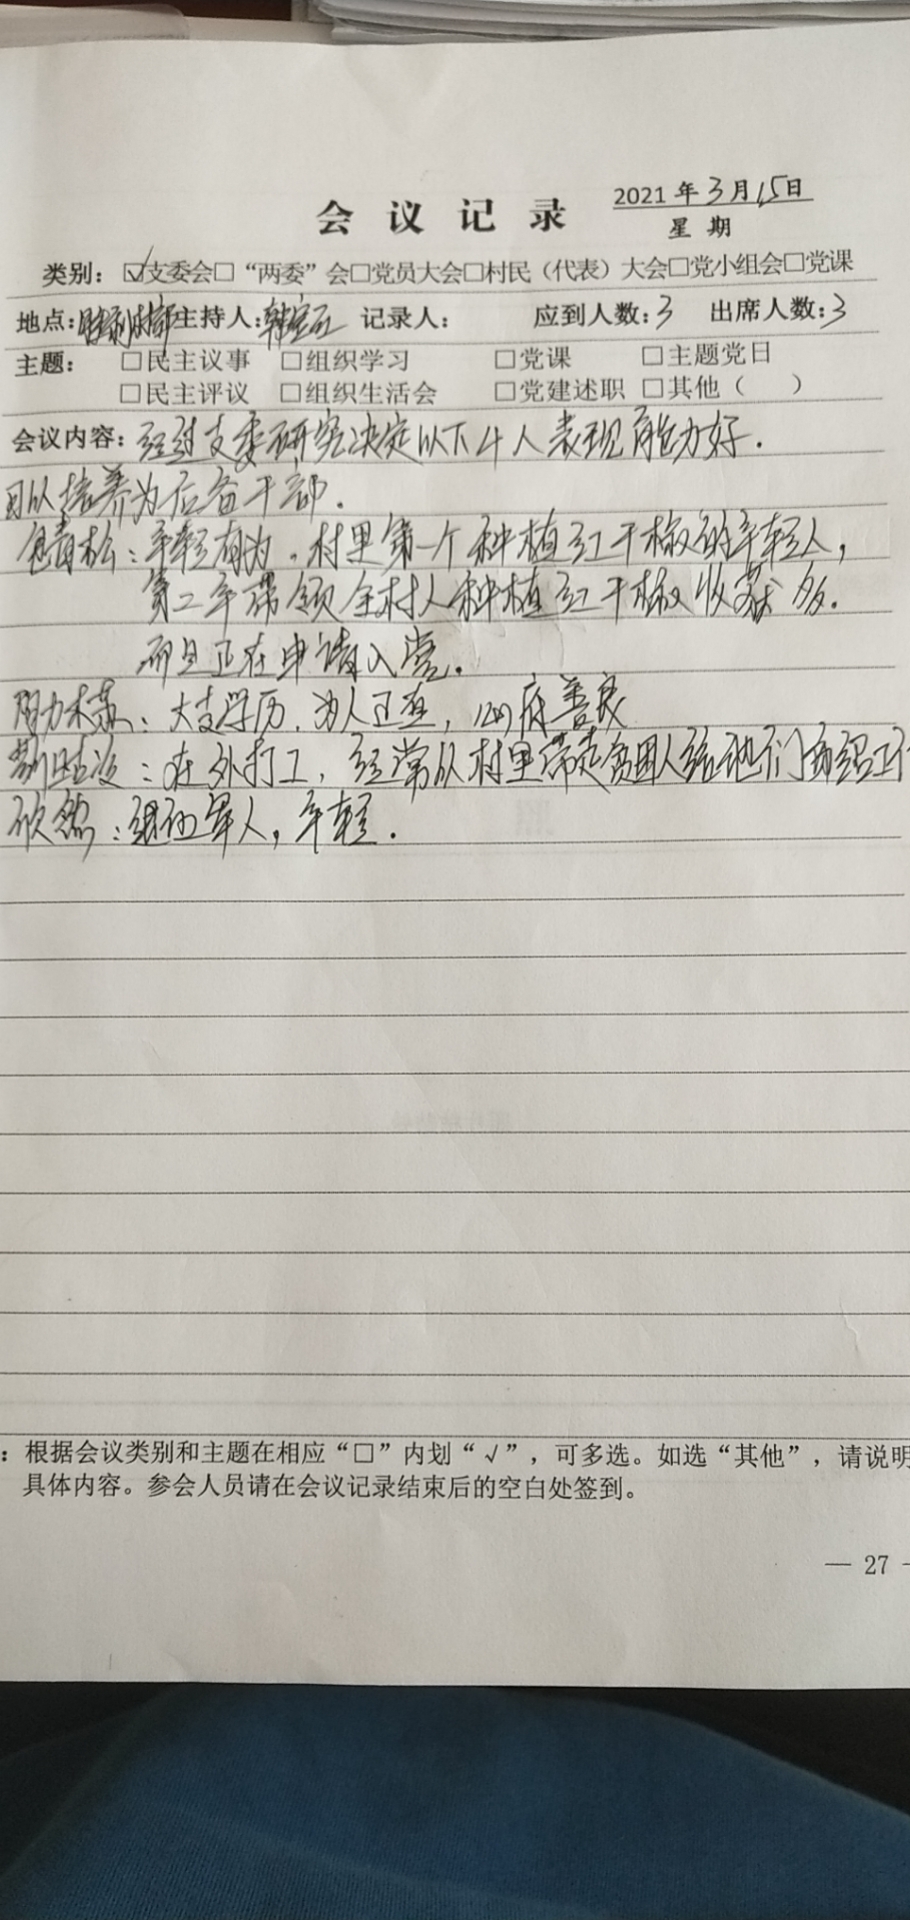 会议记录 2021年3月15日
星期
类别：☑支委会□“两委”会□党员大会□村民（代表）大会□党小组会□党课
地点： 主持人： 记录人： 应到人数：3 出席人数：3
主题： □民主议事 □组织学习 □党课 □主题党日
□民主评议 □组织生活会 □党建述职 □其他（ ）
会议内容：经过支委研究决定以下4人表现能力好.
可以培养为后备干部.
包青松：年轻有为.村里第一个种植红干椒的年轻人，
第二年带领全村人种植红干椒收获多.
而且正在申请入党.
木苏：大专学历.为人正直，心府善良
在外打工，经常从村里带走贫困人给他们介绍工作
军人，年轻.
：根据会议类别和主题在相应“□”内划“√”，可多选。如选“其他”，请说明
具体内容。参会人员请在会议记录结束后的空白处签到。
— 27 -